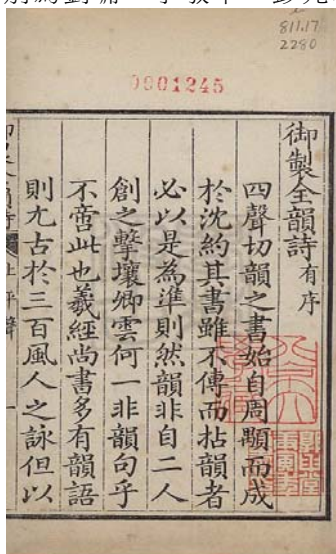 811.17
2280
0001245
御製全韻詩有序
四聲切韻之書始自周顒而成
於沈約其書雖不傳而拈韻者
必以是為準則然韻非自二人
創之擊壤卿雲何一非韻句乎
不啻此也羲經尚書多有韻語
則尤古於三百風人之詠但以
上平聲
一